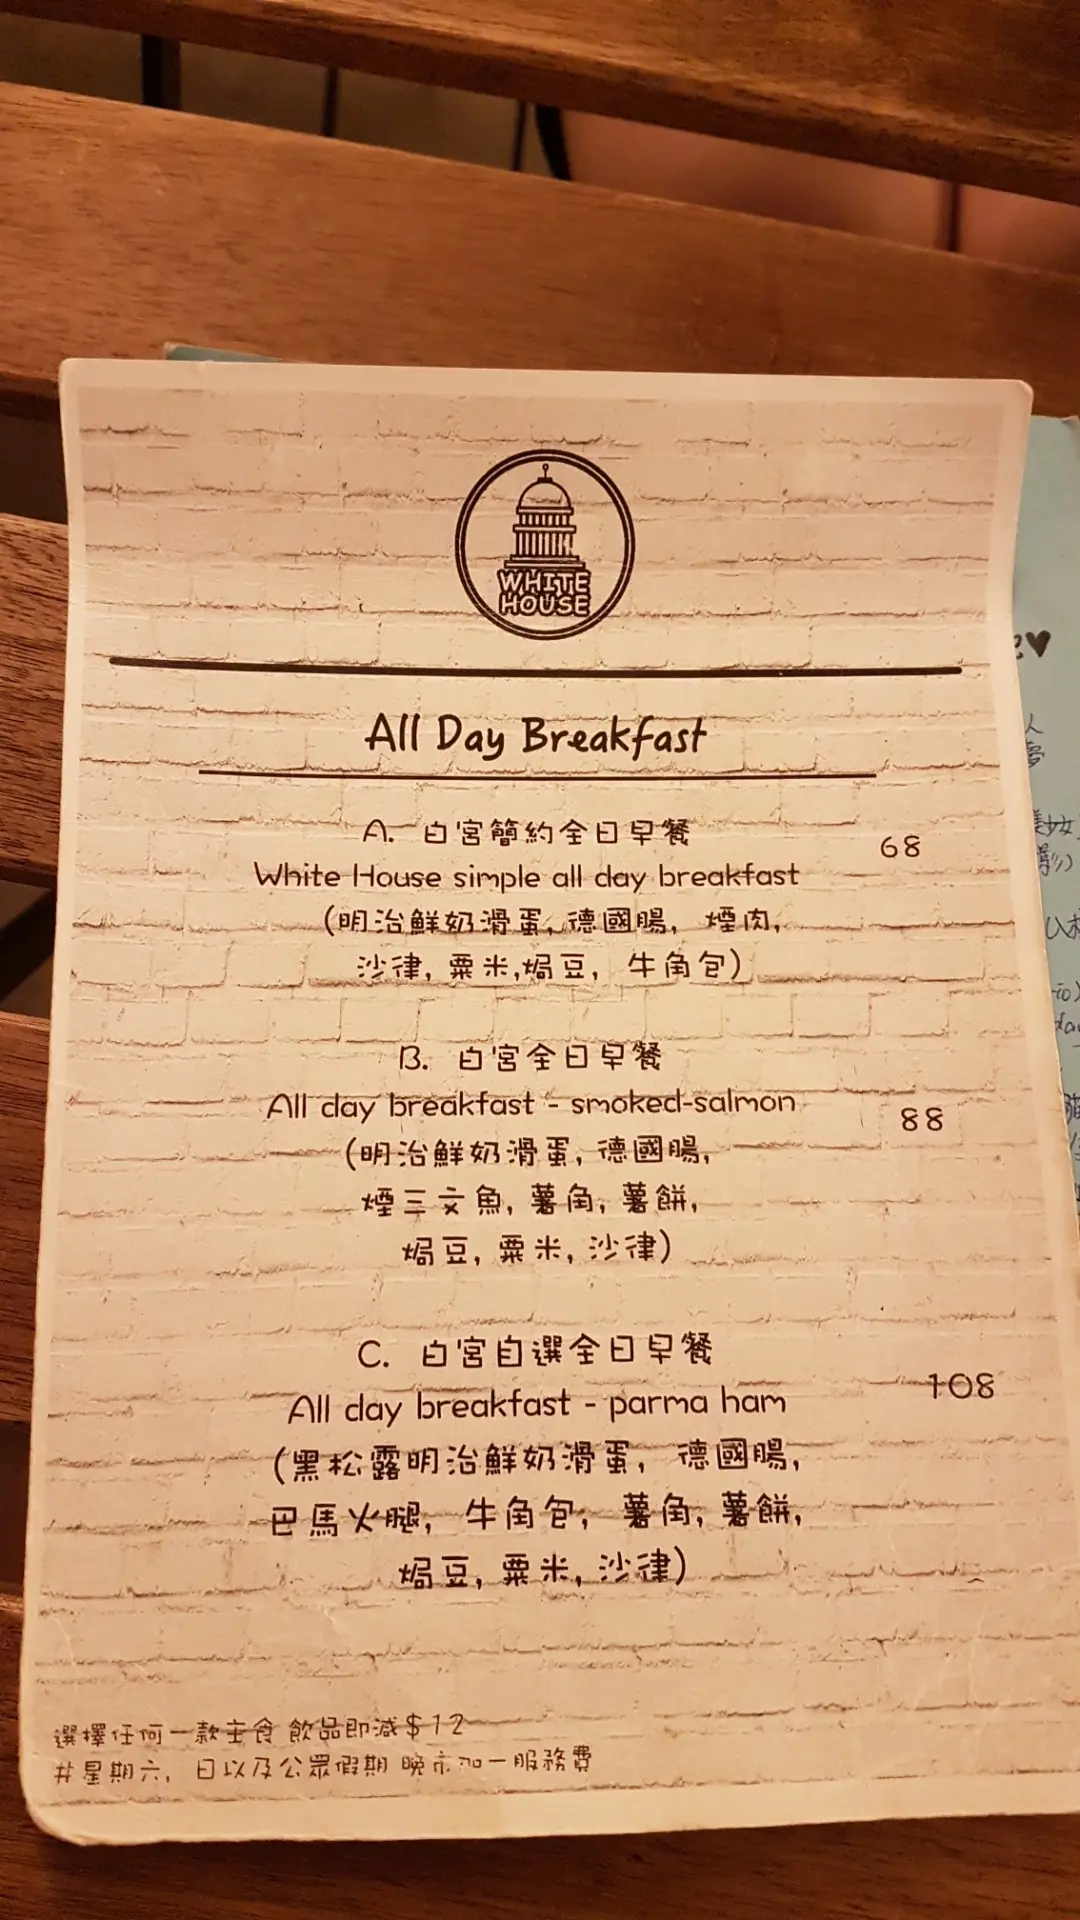 WHITE
HOUSE
All Day Breakfast
A. 白宮簡約全日早餐 68
White House simple all day breakfast
(明治鮮奶滑蛋, 德國腸, 煙肉,
沙律, 粟米,焗豆, 牛角包)
B. 白宮全日早餐
All day breakfast - smoked-salmon 88
(明治鮮奶滑蛋, 德國腸,
煙三文魚, 薯角, 薯餅,
焗豆, 粟米, 沙律)
C. 白宮自選全日早餐
All day breakfast - parma ham 108
(黑松露明治鮮奶滑蛋, 德國腸,
巴馬火腿, 牛角包, 薯角, 薯餅,
焗豆, 粟米, 沙律)
選擇任何一款主食 飲品即減$12
#星期六, 日以及公眾假期 晚市加一服務費